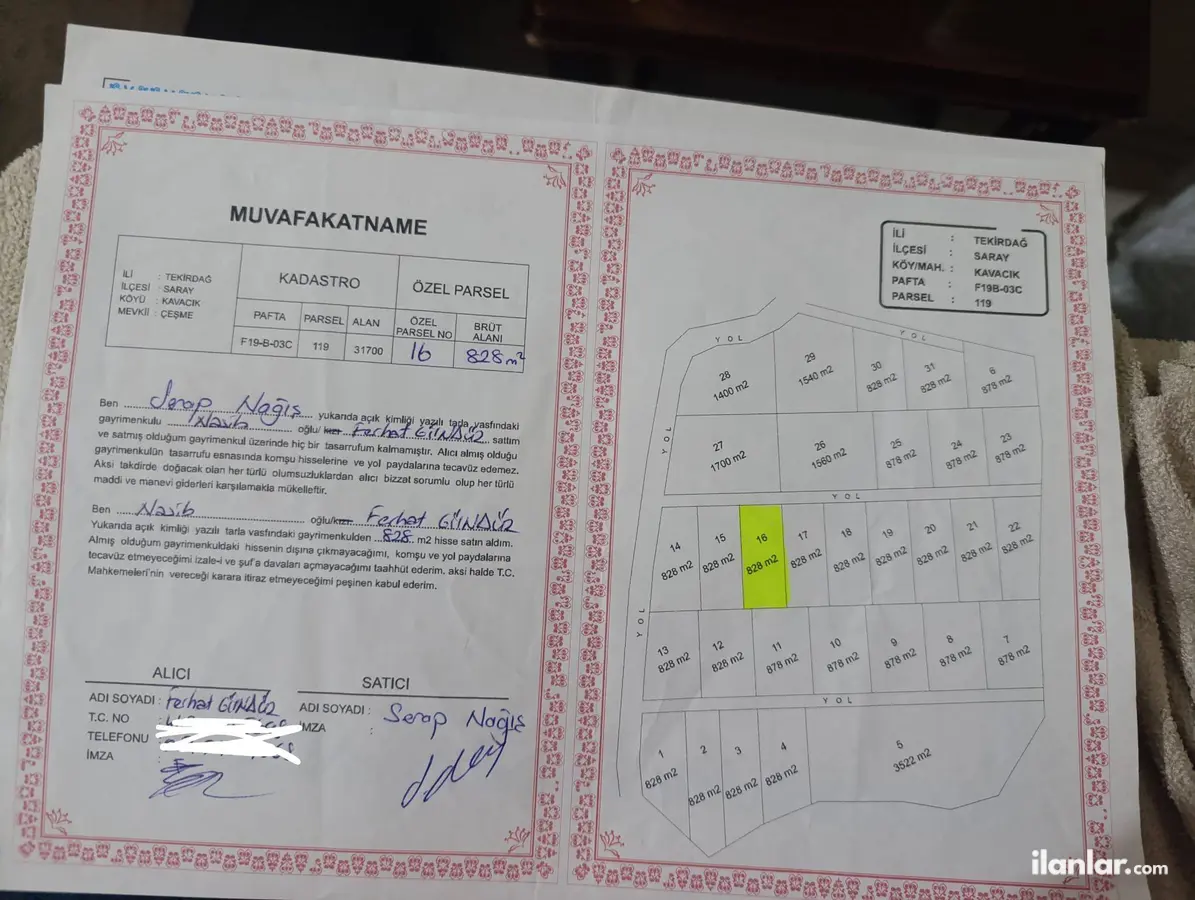 MUVAFAKATNAME
İLİ : TEKİRDAĞ
İLÇESİ : SARAY
KÖYÜ : KAVACIK
MEVKİİ : ÇEŞME
KADASTRO
ÖZEL PARSEL
PAFTA PARSEL ALAN ÖZEL PARSEL NO BRÜT ALANI
F19-B-03C 119 31700 16 828 m²
Ben Serap Nağış yukarıda açık kimliği yazılı tarla vasfındaki
gayrimenkulu Nasib oğlu/kızı Ferhat GÜNDÜZ sattım
ve satmış olduğum gayrimenkul üzerinde hiç bir tasarrufum kalmamıştır. Alıcı almış olduğu
gayrimenkulün tasarrufu esnasında komşu hisselerine ve yol paydalarına tecavüz edemez.
Aksi takdirde doğacak olan her türlü olumsuzluklardan alıcı bizzat sorumlu olup her türlü
maddi ve manevi giderleri karşılamakla mükelleftir.
Ben Nasib oğlu/kızı Ferhat GÜNDÜZ
Yukarıda açık kimliği yazılı tarla vasfındaki gayrimenkulden 828 m2 hisse satın aldım.
Almış olduğum gayrimenkuldaki hissenin dışına çıkmayacağımı, komşu ve yol paydalarına
tecavüz etmeyeceğimi izale-i ve şuf'a davaları açmayacağımı taahhüt ederim. aksi halde T.C.
Mahkemeleri'nin vereceği karara itiraz etmeyeceğimi peşinen kabul ederim.
ALICI
ADI SOYADI : Ferhat GÜNDÜZ
T.C. NO :
TELEFONU :
İMZA :
SATICI
ADI SOYADI : Serap Nağış
İMZA :
İLİ : TEKİRDAĞ
İLÇESİ : SARAY
KÖY/MAH. : KAVACIK
PAFTA : F19B-03C
PARSEL : 119
YOL
YOL
28
1400 m2
29
1540 m2
30
828 m2
31
828 m2
6
878 m2
YOL
27
1700 m2
26
1560 m2
25
878 m2
24
878 m2
23
878 m2
YOL
14
828 m2
15
828 m2
16
828 m2
17
828 m2
18
828 m2
19
828 m2
20
828 m2
21
828 m2
22
828 m2
YOL
13
828 m2
12
828 m2
11
878 m2
10
878 m2
9
878 m2
8
878 m2
7
878 m2
YOL
1
828 m2
2
828 m2
3
828 m2
4
828 m2
5
3522 m2
ilanlar.com